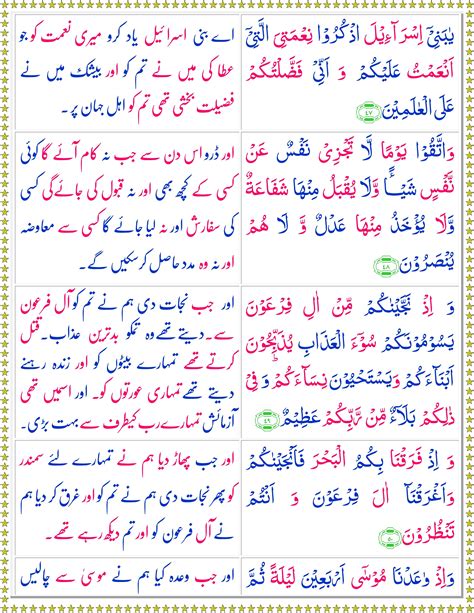 یٰبَنِیْۤ اِسْرَآءِیْلَ اذْكُرُوْا نِعْمَتِیَ الَّتِیْۤ
اَنْعَمْتُ عَلَیْكُمْ وَ اَنِّیْ فَضَّلْتُكُمْ
عَلَی الْعٰلَمِیْنَ ﴿۴۷﴾
اے بنی اسرائیل یاد کرو میری نعمت کو جو
عطا کی میں نے تم کو اور بیشک میں نے
فضیلت بخشی تھی تم کو اہل جہان پر۔
وَاتَّقُوْا یَوْمًا لَّا تَجْزِیْ نَفْسٌ عَنْ
نَّفْسٍ شَیْـًٔا وَّلَا یُقْبَلُ مِنْهَا شَفَاعَةٌ
وَّلَا یُؤْخَذُ مِنْهَا عَدْلٌ وَّ لَا هُمْ
یُنْصَرُوْنَ ﴿۴۸﴾
اور ڈرو اس دن سے جب نہ کام آئے گا کوئی
کسی کے کچھ بھی اور نہ قبول کی جائےگی کسی
کی سفارش اور نہ لیا جائے گا کسی سے معاوضہ
اور نہ وہ مدد حاصل کرسکیں گے۔
وَ اِذْ نَجَّیْنٰكُمْ مِّنْ اٰلِ فِرْعَوْنَ
یَسُوْمُوْنَكُمْ سُوْٓءَ الْعَذَابِ یُذَبِّحُوْنَ
اَبْنَآءَكُمْ وَیَسْتَحْیُوْنَ نِسَآءَكُمْ ؕ وَ فِیْ
ذٰلِكُمْ بَلَآءٌ مِّنْ رَّبِّكُمْ عَظِیْمٌ ﴿۴۹﴾
اور جب نجات دی ہم نے تم کو آل فرعون
سے۔ دیتے تھے وہ تمکو بدترین عذاب۔ قتل
کرتے تھے تمہارے بیٹوں کو اور زندہ رہنے
دیتے تھے تمہاری عورتوں کو۔ اور اسمیں تھی
آزمائش تمہارے رب کیطرف سے بہت بڑی۔
وَ اِذْ فَرَقْنَا بِكُمُ الْبَحْرَ فَاَنْجَیْنٰكُمْ
وَاَغْرَقْنَاۤ اٰلَ فِرْعَوْنَ وَ اَنْتُمْ
تَنْظُرُوْنَ ﴿۵۰﴾
اور جب پھاڑ دیا ہم نے تمہارے لئے سمندر
کو پھر نجات دی ہم نے تم کو اور غرق کر دیا ہم
نے آل فرعون کو اور تم دیکھ رہے تھے۔
وَاِذْ وٰعَدْنَا مُوْسٰۤی اَرْبَعِیْنَ لَیْلَةً ثُمَّ
اور جب وعدہ کیا ہم نے موسیٰ سے چالیس